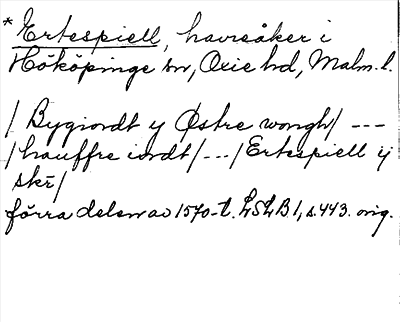 * Ertespiell, havreåker i
Hököpinge sn, Oxie hd, Malm. l.
/ Bygiordt y Østre wongh/ ---
/ hauffre iordt/ --- / Ertespiell ij
skr̄ /
förra delen av 1570-t. LSLB 1, s. 443. orig.